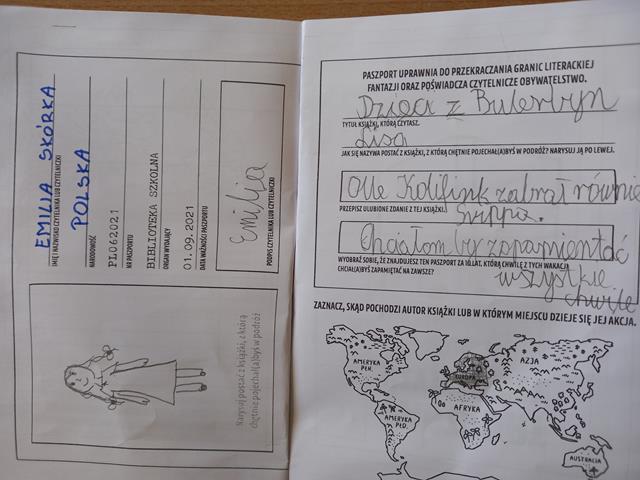 EMILIA SKÓRKA
IMIĘ I NAZWISKO CZYTELNIKA LUB CZYTELNICZKI
POLSKA
NARODOWOŚĆ
PL062021
NR PASZPORTU
BIBLIOTEKA SZKOLNA
ORGAN WYDAJĄCY
01.09.2021
DATA WAŻNOŚCI PASZPORTU
Emilia
PODPIS CZYTELNIKA LUB CZYTELNICZKI
Narysuj postać z książki, z którą
chętnie pojechał(a)byś w podróż
PASZPORT UPRAWNIA DO PRZEKRACZANIA GRANIC LITERACKIEJ
FANTAZJI ORAZ POŚWIADCZA CZYTELNICZE OBYWATELSTWO.
Dzieci z Bulerbyn
TYTUŁ KSIĄŻKI, KTÓRĄ CZYTASZ.
Lisa
JAK SIĘ NAZYWA POSTAĆ Z KSIĄŻKI, Z KTÓRĄ CHĘTNIE POJECHAŁ(A)BYŚ W PODRÓŻ? NARYSUJ JĄ PO LEWEJ.
Olle zabrał również
PRZEPISZ ULUBIONE ZDANIE Z TEJ KSIĄŻKI.
Svippa.
Chciałom by zapamientać
WYOBRAŹ SOBIE, ŻE ZNAJDUJESZ TEN PASZPORT ZA 10 LAT. KTÓRĄ CHWILĘ Z TYCH WAKACJI
CHCIAŁ(A)BYŚ ZAPAMIĘTAĆ NA ZAWSZE?
wszystkie
chwile
ZAZNACZ, SKĄD POCHODZI AUTOR KSIĄŻKI LUB W KTÓRYM MIEJSCU DZIEJE SIĘ JEJ AKCJA.
AMERYKA
PŁN.
EUROPA
AZJA
AFRYKA
AMERYKA
PŁD.
AUSTRALIA